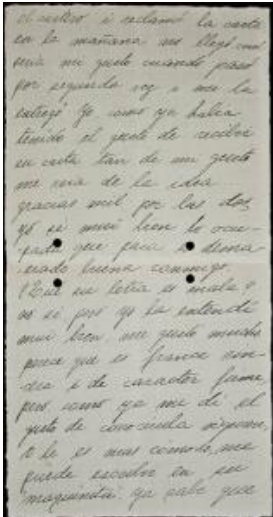 el cartero i reclamó la carta
en la mañana no llegó
sería mi gusto cuando pasó
por segunda vez i me la
entregó! Yo como ya había
tenido el gusto de recibir
su carta tan de mi gusto
me de la idea
gracias mil por las dos,
Yo sé mui bien lo ocu-
pada que pasa i dema-
siado buena conmigo.
¿Que su letra es mala?
no sé pero yo la entendí
mui bien, me gusta mucho
parece que es franca
i de caracter firme,
pero como ya me dí el
gusto de conocerla
si le es mas cómodo, me
puede escribir en su
maquinita. ya sabe que